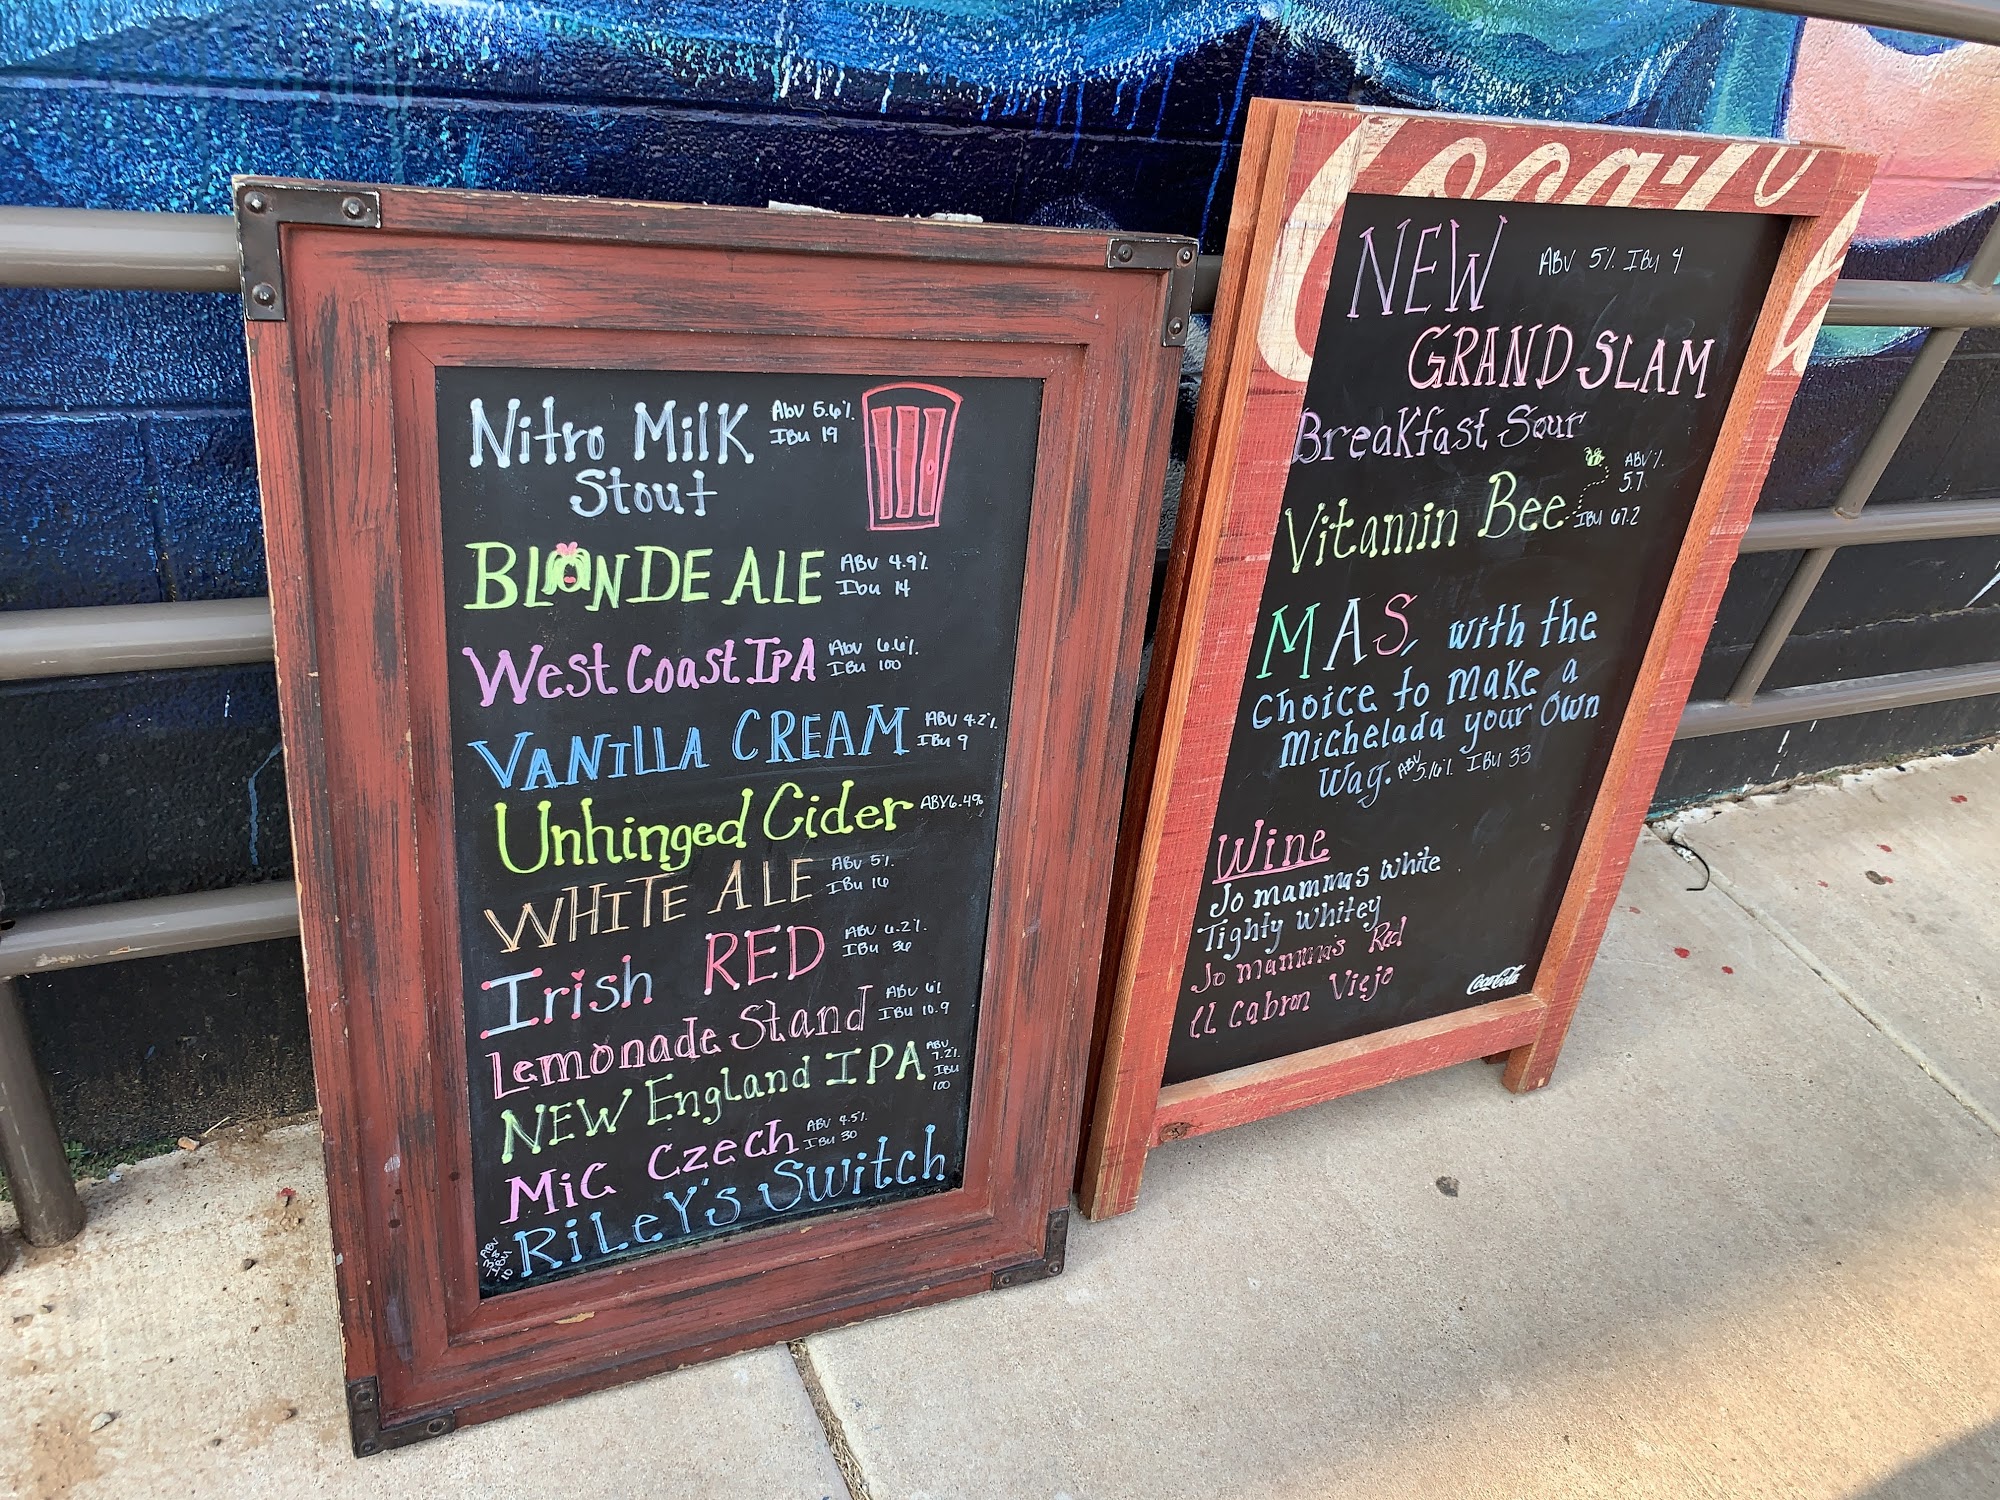 Nitro Milk
Stout
ABV 5.6%
IBU 19
BLONDE ALE
ABV 4.9%
Ibu 14
West Coast IPA
Abv 6.6%
IBU 100
VANILLA CREAM
ABV 4.2%
IBU 9
Unhinged Cider
ABV 6.4%
WHITE ALE
ABV 5%
IBU 16
Irish RED
ABV 6.2%
IBU 36
Lemonade Stand
ABV
IBU 10.9
NEW England IPA
ABV
7.2%
IBU
100
MiC Czech
ABV 4.5%
IBU 30
RiLeY's Switch
ABV
IBU
10
Coca-Co
NEW
ABV 5% IBU 4
GRAND SLAM
Breakfast Sour
Vitamin Bee
ABV %
5.7
IBU 67.2
MAS, with the
choice to make a
Michelada your own
way.
ABV 5.6% IBU 33
Wine
Jo mammas white
Tighty Whitey
Jo mamma's Red
El Cabron Viejo
Coca-Cola